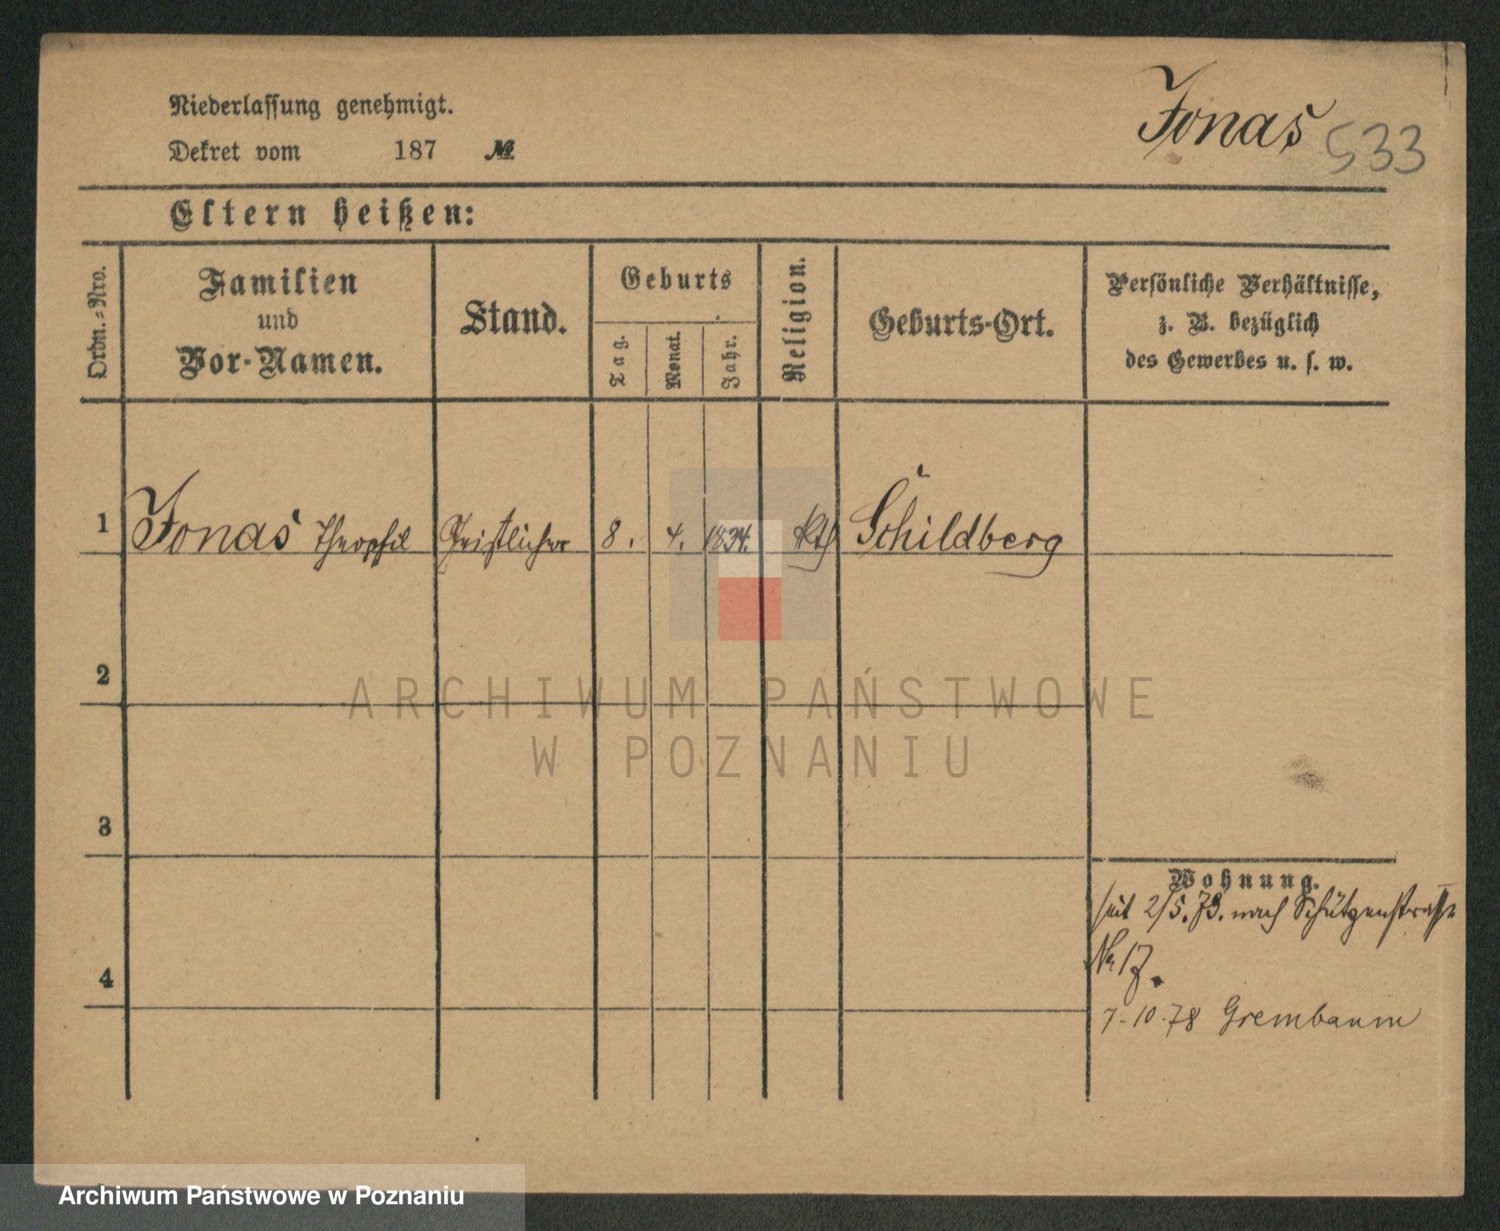 Niederlassung genehmigt.
Jonas 533
Dekret vom 187 №
Eltern heißen:
Ordn.-Nro.
Familien
und
Vor-Namen.
Stand.
Geburts
Tag.
Monat.
Jahr.
Religion.
Geburts-Ort.
Persönliche Verhältnisse,
z. B. bezüglich
des Gewerbes u. s. w.
1 Jonas Theophil Geistlicher 8. 4. 1834. kth Schildberg
2
ARCHIWUM PAŃSTWOWE
W POZNANIU
3
Wohnung.
seit 2/5.73. nach Schützenstrasse
4
No 17.
7-10.78 Grembanin
Archiwum Państwowe w Poznaniu